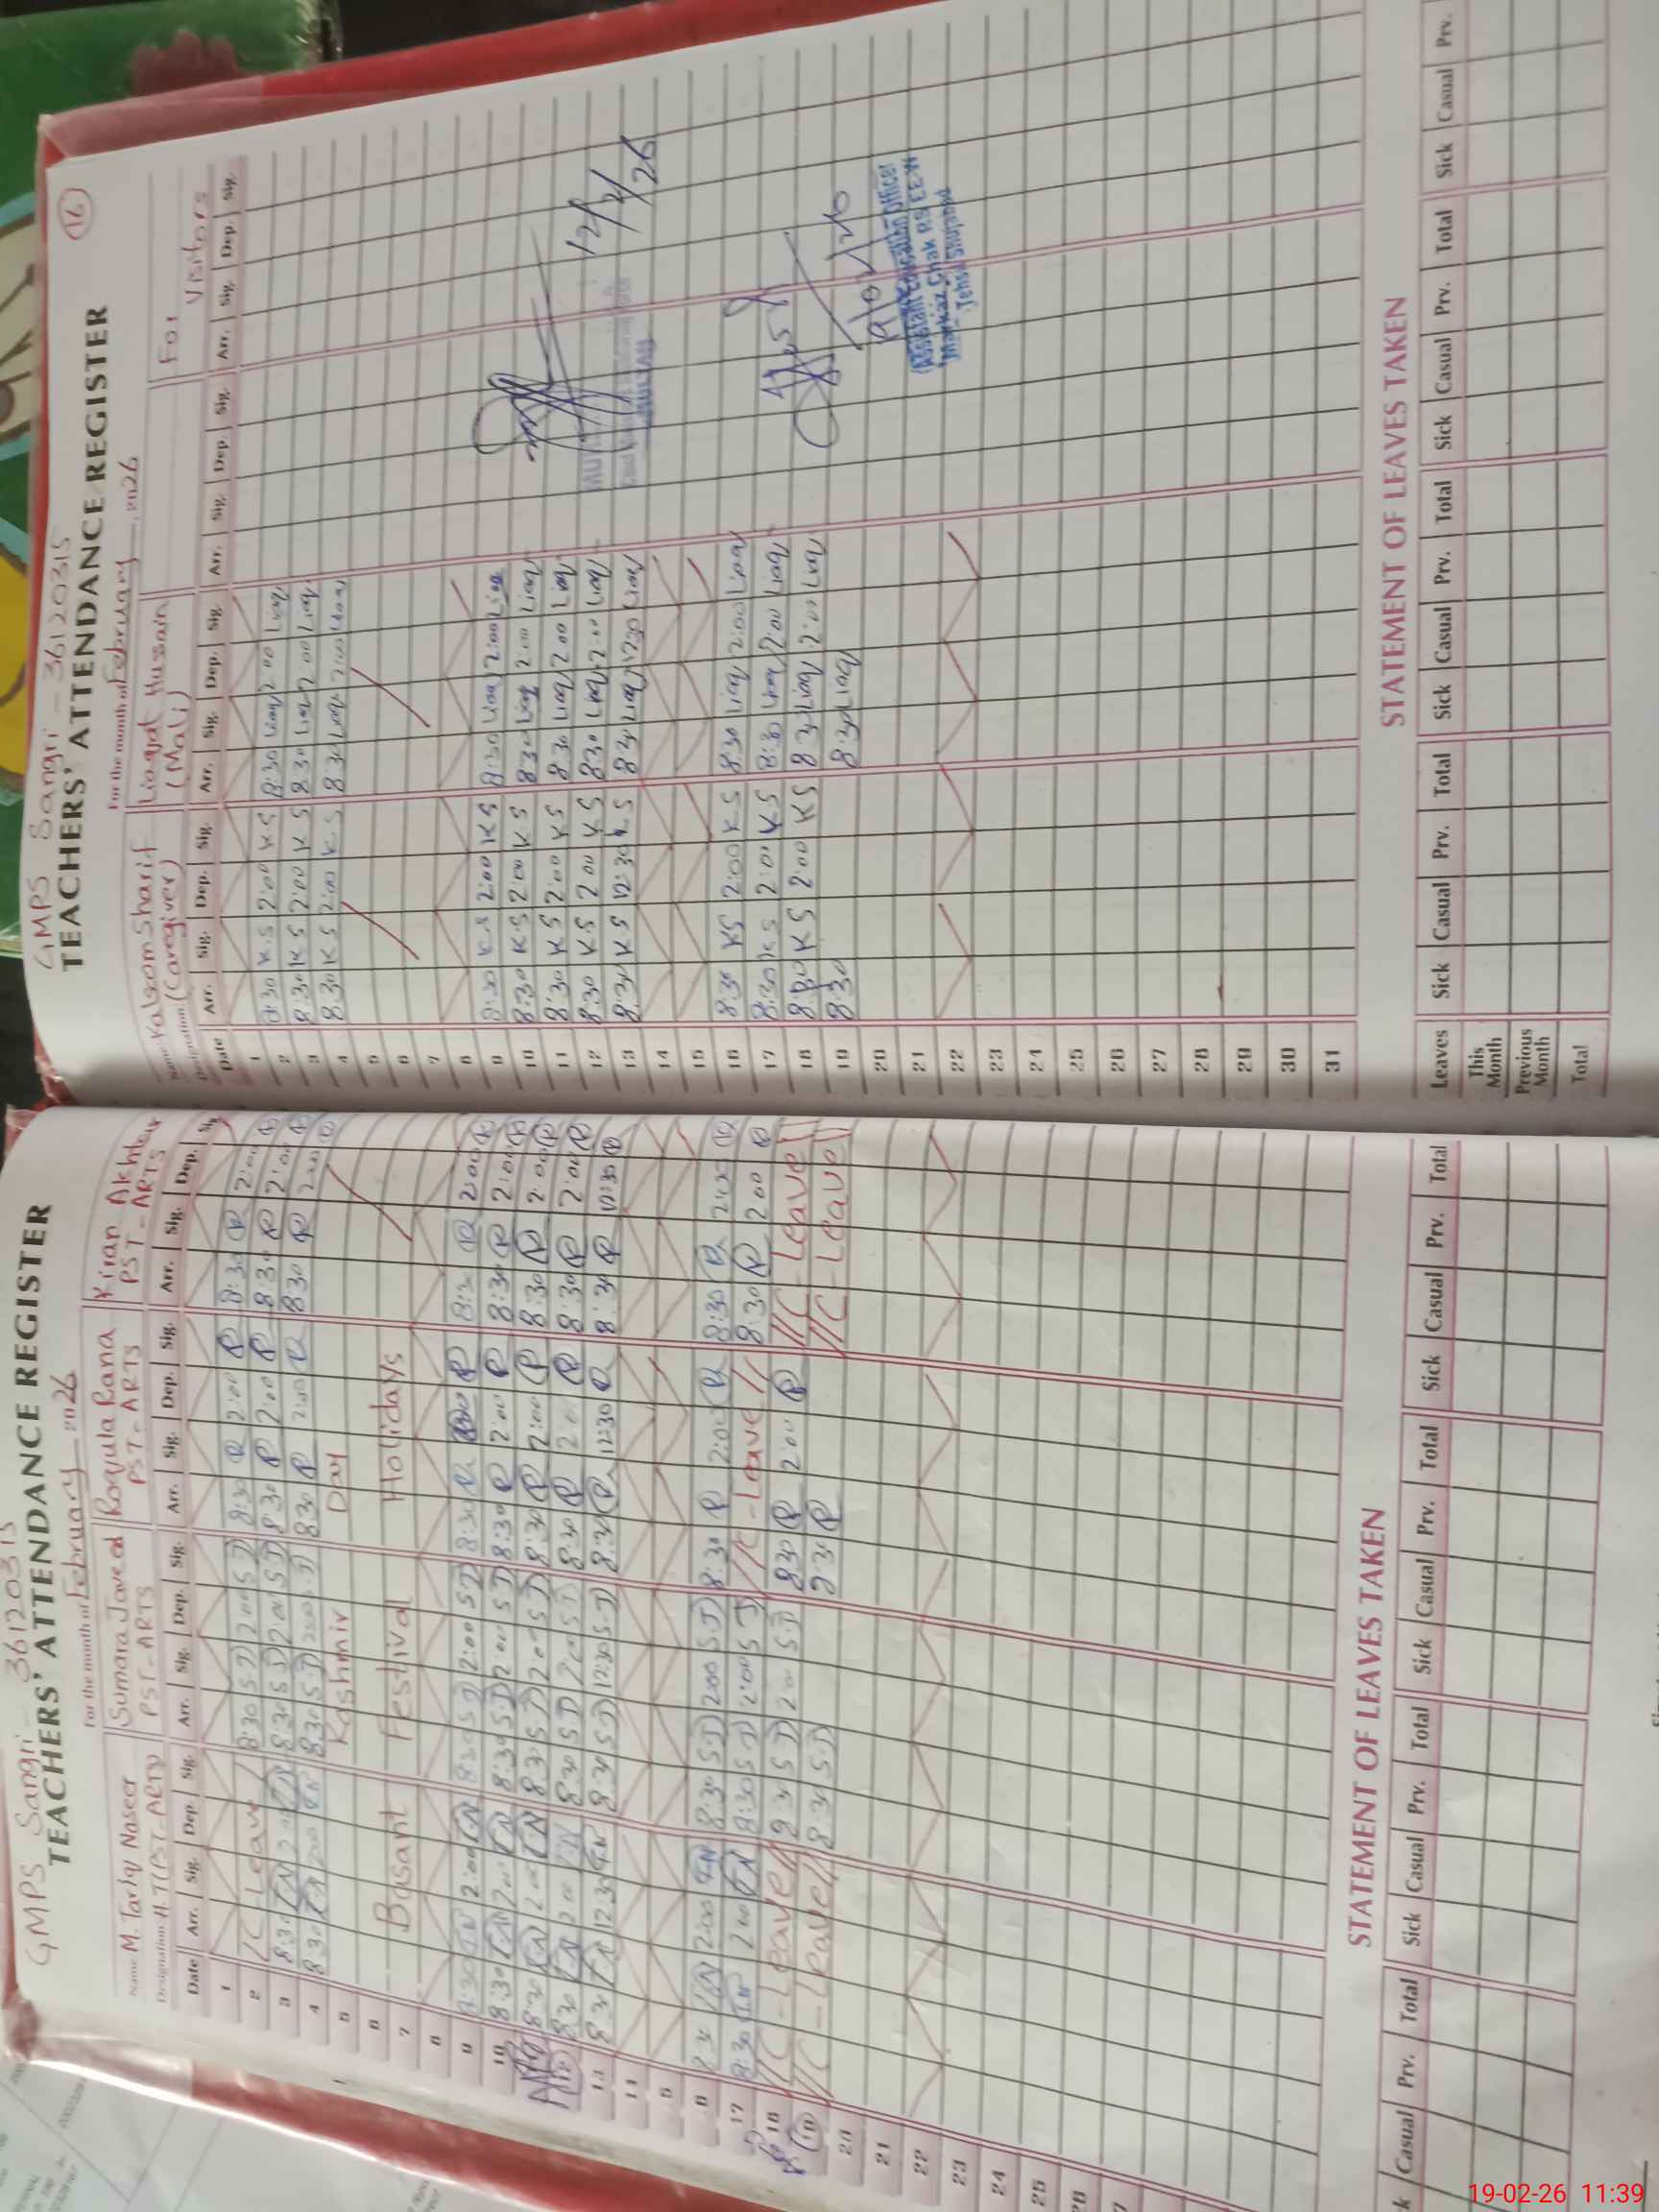 GMPS Sangri - 36120315
TEACHERS' ATTENDANCE REGISTER
For the month of February 2026
Name M. Tariq Naseer Sumara Javeed Roqyula Rana Kiran Akhtar
Designation H.T (PST-ARTS) PST-ARTS PST-ARTS PST-ARTS
Date Arr. Sig. Dep. Sig. Arr. Sig. Dep. Sig. Arr. Sig. Dep. Sig. Arr. Sig. Dep.
1
2 C-Leave 8:30 SJ 2:00 SJ 8:30 R 2:00 R 8:30 2:00
3 8:30 TN 2:00 TN 8:30 SJ 2:00 SJ 8:30 R 2:00 R 8:30 2:00
4 8:30 TN 2:00 TN 8:30 SJ 2:00 SJ 8:30 R 2:00 R 8:30 2:00
5 Kashmir Day
6
7 Basant Festival Holidays
8
9 8:30 TN 2:00 TN 8:30 SJ 2:00 SJ 8:30 R R 8:30 2:00
10 8:30 TN 2:00 TN 8:30 SJ 2:00 SJ 8:30 R 2:00 R 8:30 2:00
8:30 TN 2:00 TN 8:30 SJ 2:00 SJ 8:30 R 2:00 R 8:30 2:00
12 8:30 TN 2:00 TN 8:30 SJ 2:00 SJ 8:30 R 2:00 R 8:30 2:00
13 8:30 TN 12:30 TN 8:30 SJ 12:30 SJ 8:30 R 12:30 R 8:30 12:30
8:30 TN 2:00 TN 8:30 SJ 2:00 SJ 8:30 R 2:00 R 8:30 2:00
17 8:30 TN 2:00 TN 8:30 SJ 2:00 SJ C-Leave 8:30 2:00
18 C-Leave 8:30 SJ 2:00 SJ 8:30 R 2:00 R C-Leave
C-Leave 8:30 SJ 8:30 R C-Leave
20
21
22
23
24
25
26
STATEMENT OF LEAVES TAKEN
Casual Prv. Total Sick Casual Prv. Total Sick Casual Prv. Total Sick Casual Prv. Total
GMPS Sangri - 36120315
16
TEACHERS' ATTENDANCE REGISTER
For the month of February 2026
Name Kalsom Sharif Liaqat Husain For Visitors
Designation (Caregiver) (Mali)
Date Arr. Sig. Dep. Sig. Arr. Sig. Dep. Sig. Arr. Sig. Dep. Sig. Arr. Sig. Dep. Sig.
1
2 8:30 K.S 2:00 KS 8:30 Liaq 2:00 Liaq
3 8:30 KS 2:00 KS 8:30 Liaq 2:00 Liaq
4 8:30 KS 2:00 KS 8:30 Liaq 2:00 Liaq
5
6
7
8
9 8:30 K.S 2:00 KS 8:30 Liaq 2:00 Liaq
10 8:30 K.S 2:00 KS 8:30 Liaq 2:00 Liaq
11 8:30 KS 2:00 KS 8:30 Liaq 2:00 Liaq
12 8:30 KS 2:00 KS 8:30 Liaq 2:00 Liaq 12/2/26
13 8:30 KS 12:30 KS 8:30 Liaq 12:30 Liaq
14
15
16 8:30 KS 2:00 KS 8:30 Liaq 2:00 Liaq
17 8:30 KS 2:00 KS 8:30 Liaq 2:00 Liaq
18 8:30 KS 2:00 KS 8:30 Liaq 2:00 Liaq
19 8:30 8:30 Liaq
20
Assistant Education Officer
Markaz Chak RS EE-W
Tehsil Shujabad
21
22
23
24
25
26
27
28
29
30
31
STATEMENT OF LEAVES TAKEN
Leaves Sick Casual Prv. Total Sick Casual Prv. Total Sick Casual Prv. Total Sick Casual Prv.
This Month
Previous Month
Total
19-02-26 11:39